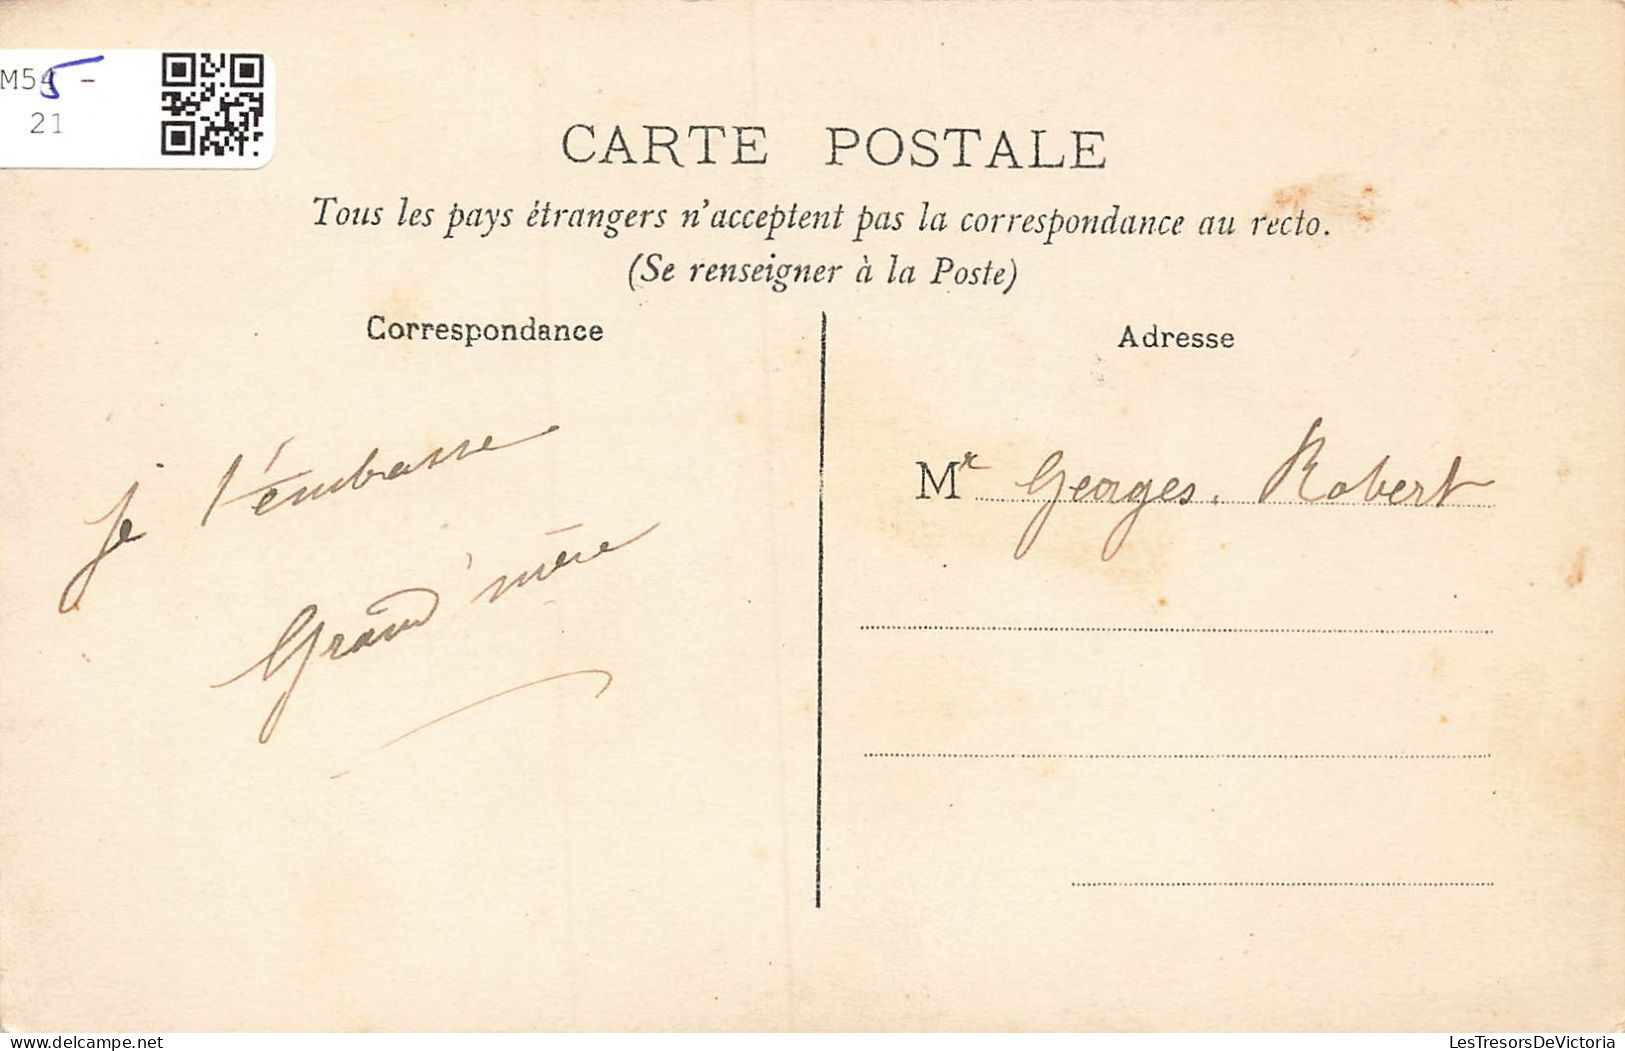 M545 -
21
CARTE POSTALE
Tous les pays étrangers n'acceptent pas la correspondance au recto.
(Se renseigner à la Poste)
Correspondance
Adresse
je t'embasse
Grand'mère
Mr Georges. Robert
delcampe.net
LesTresorsDeVictoria